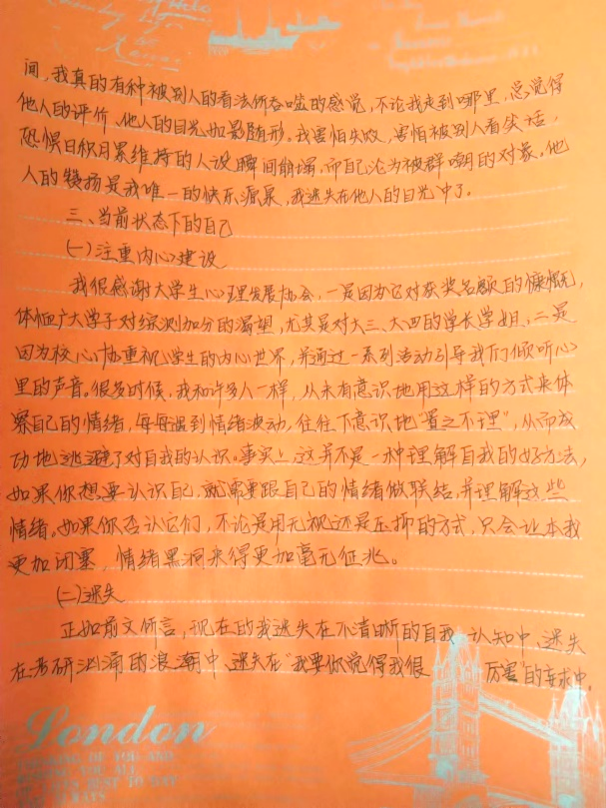 间，我真的有种被别人的看法所吞噬的感觉，不论我走到哪里，总觉得
他人的评价、他人的目光如影随形。我害怕失败，害怕被别人看笑话，
恐惧日积月累维持的人设瞬间崩塌，而自己沦为被群嘲的对象，他
人的赞扬是我唯一的快乐源泉，我迷失在他人的目光中了。
三、当前状态下的自己
(一)注重内心建设
我很感谢大学生心理发展协会，一是因为它对获奖名额的慷慨，
体恤广大学子对综测加分的渴望，尤其是对大三、大四的学长学姐，二是
因为校心协重视学生的内心世界，并通过一系列活动引导我们倾听心
里的声音。很多时候，我和许多人一样，从未有意识地用这样的方式来体
察自己的情绪，每每遇到情绪波动，往往下意识地“置之不理”，从而成
功地逃避了对自我的认识。事实上，这并不是一种理解自我的好方法，
如果你想要认识自己，就需要跟自己的情绪做联结，并理解这些
情绪。如果你否认它们，不论是用无视还是压抑的方式，只会让本我
更加闭塞，情绪黑洞来得更加毫无征兆。
(二)迷失
正如前文所言，现在的我迷失在不清晰的自我认知中，迷失
在考研汹涌的浪潮中，迷失在“我要你觉得我很 厉害”的主求中，
London